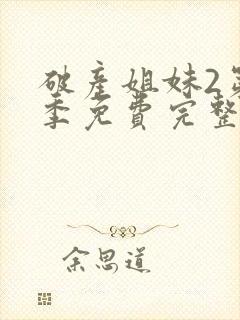 破产姐妹2第
季免费完整
余思道